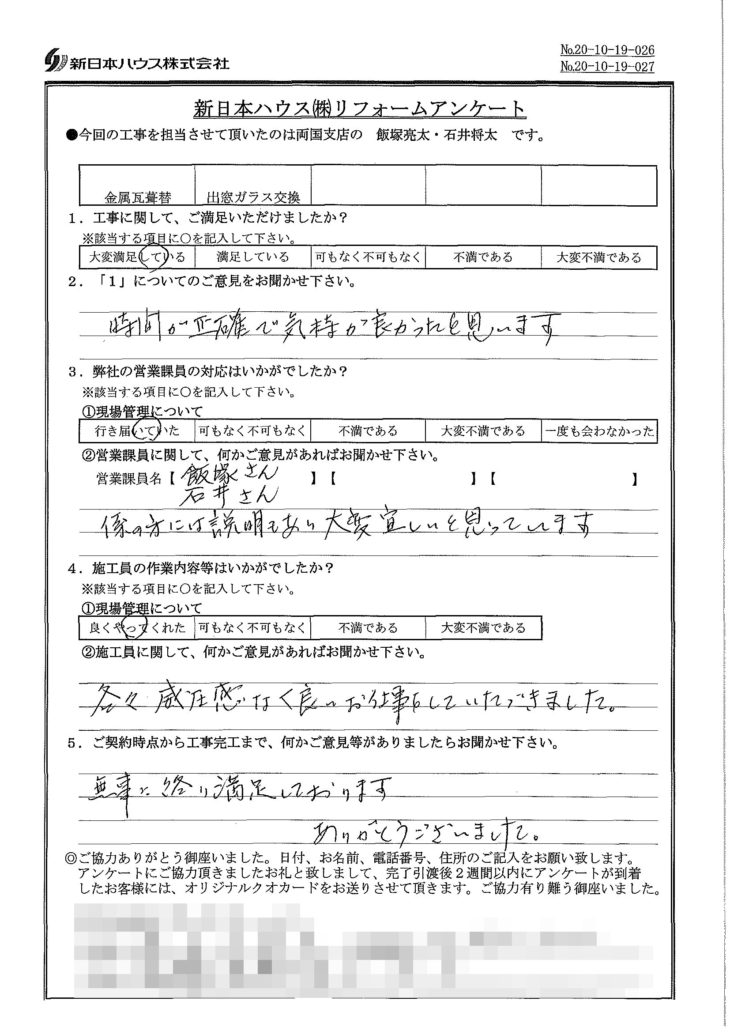 新日本ハウス株式会社
No.20-10-19-026
No.20-10-19-027
新日本ハウス㈱リフォームアンケート
●今回の工事を担当させて頂いたのは両国支店の　飯塚亮太・石井将太　です。
金属瓦葺替　出窓ガラス交換
1．工事に関して、ご満足いただけましたか？
※該当する項目に○を記入して下さい。
大変満足している　満足している　可もなく不可もなく　不満である　大変不満である
2．「1」についてのご意見をお聞かせ下さい。
時間が正確で気持が良かったと思います
3．弊社の営業課員の対応はいかがでしたか？
※該当する項目に○を記入して下さい。
①現場管理について
行き届いていた　可もなく不可もなく　不満である　大変不満である　一度も会わなかった
②営業課員に関して、何かご意見があればお聞かせ下さい。
営業課員名【飯塚さん　】【　】【　】
石井さん
係の方には説明もあり大変宜しいと思っています
4．施工員の作業内容等はいかがでしたか？
※該当する項目に○を記入して下さい。
①現場管理について
良くやってくれた　可もなく不可もなく　不満である　大変不満である
②施工員に関して、何かご意見があればお聞かせ下さい。
各々威圧感なく良いお仕事をしていただきました。
5．ご契約時点から工事完工まで、何かご意見等がありましたらお聞かせ下さい。
無事に終り満足しております
ありがとうございました。
◎ご協力ありがとう御座いました。日付、お名前、電話番号、住所のご記入をお願い致します。
アンケートにご協力頂きましたお礼と致しまして、完了引渡後2週間以内にアンケートが到着
したお客様には、オリジナルクオカードをお送りさせて頂きます。ご協力有り難う御座いました。